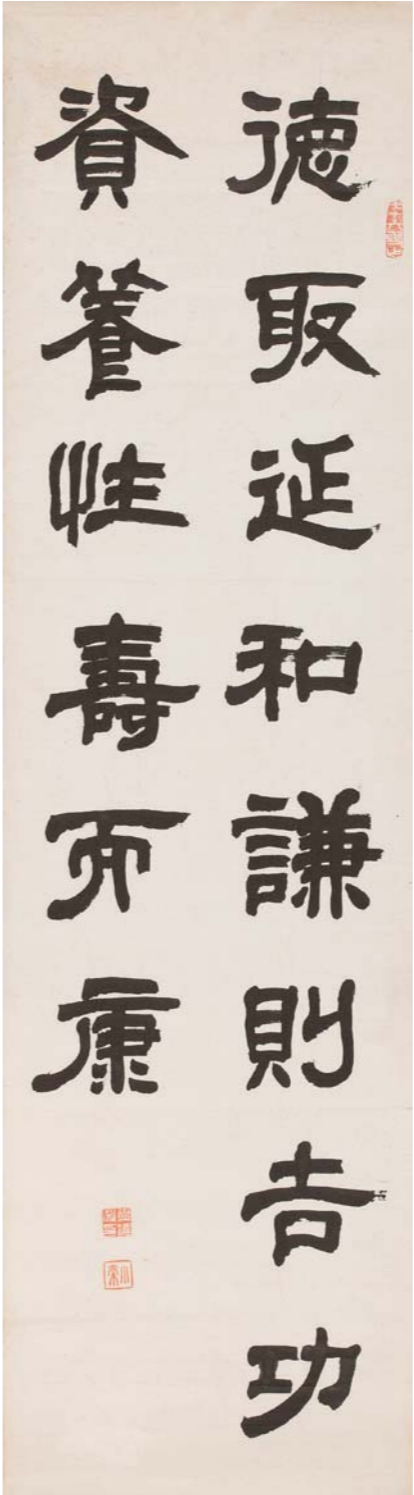 德取延和謙則吉功
資養性壽而康